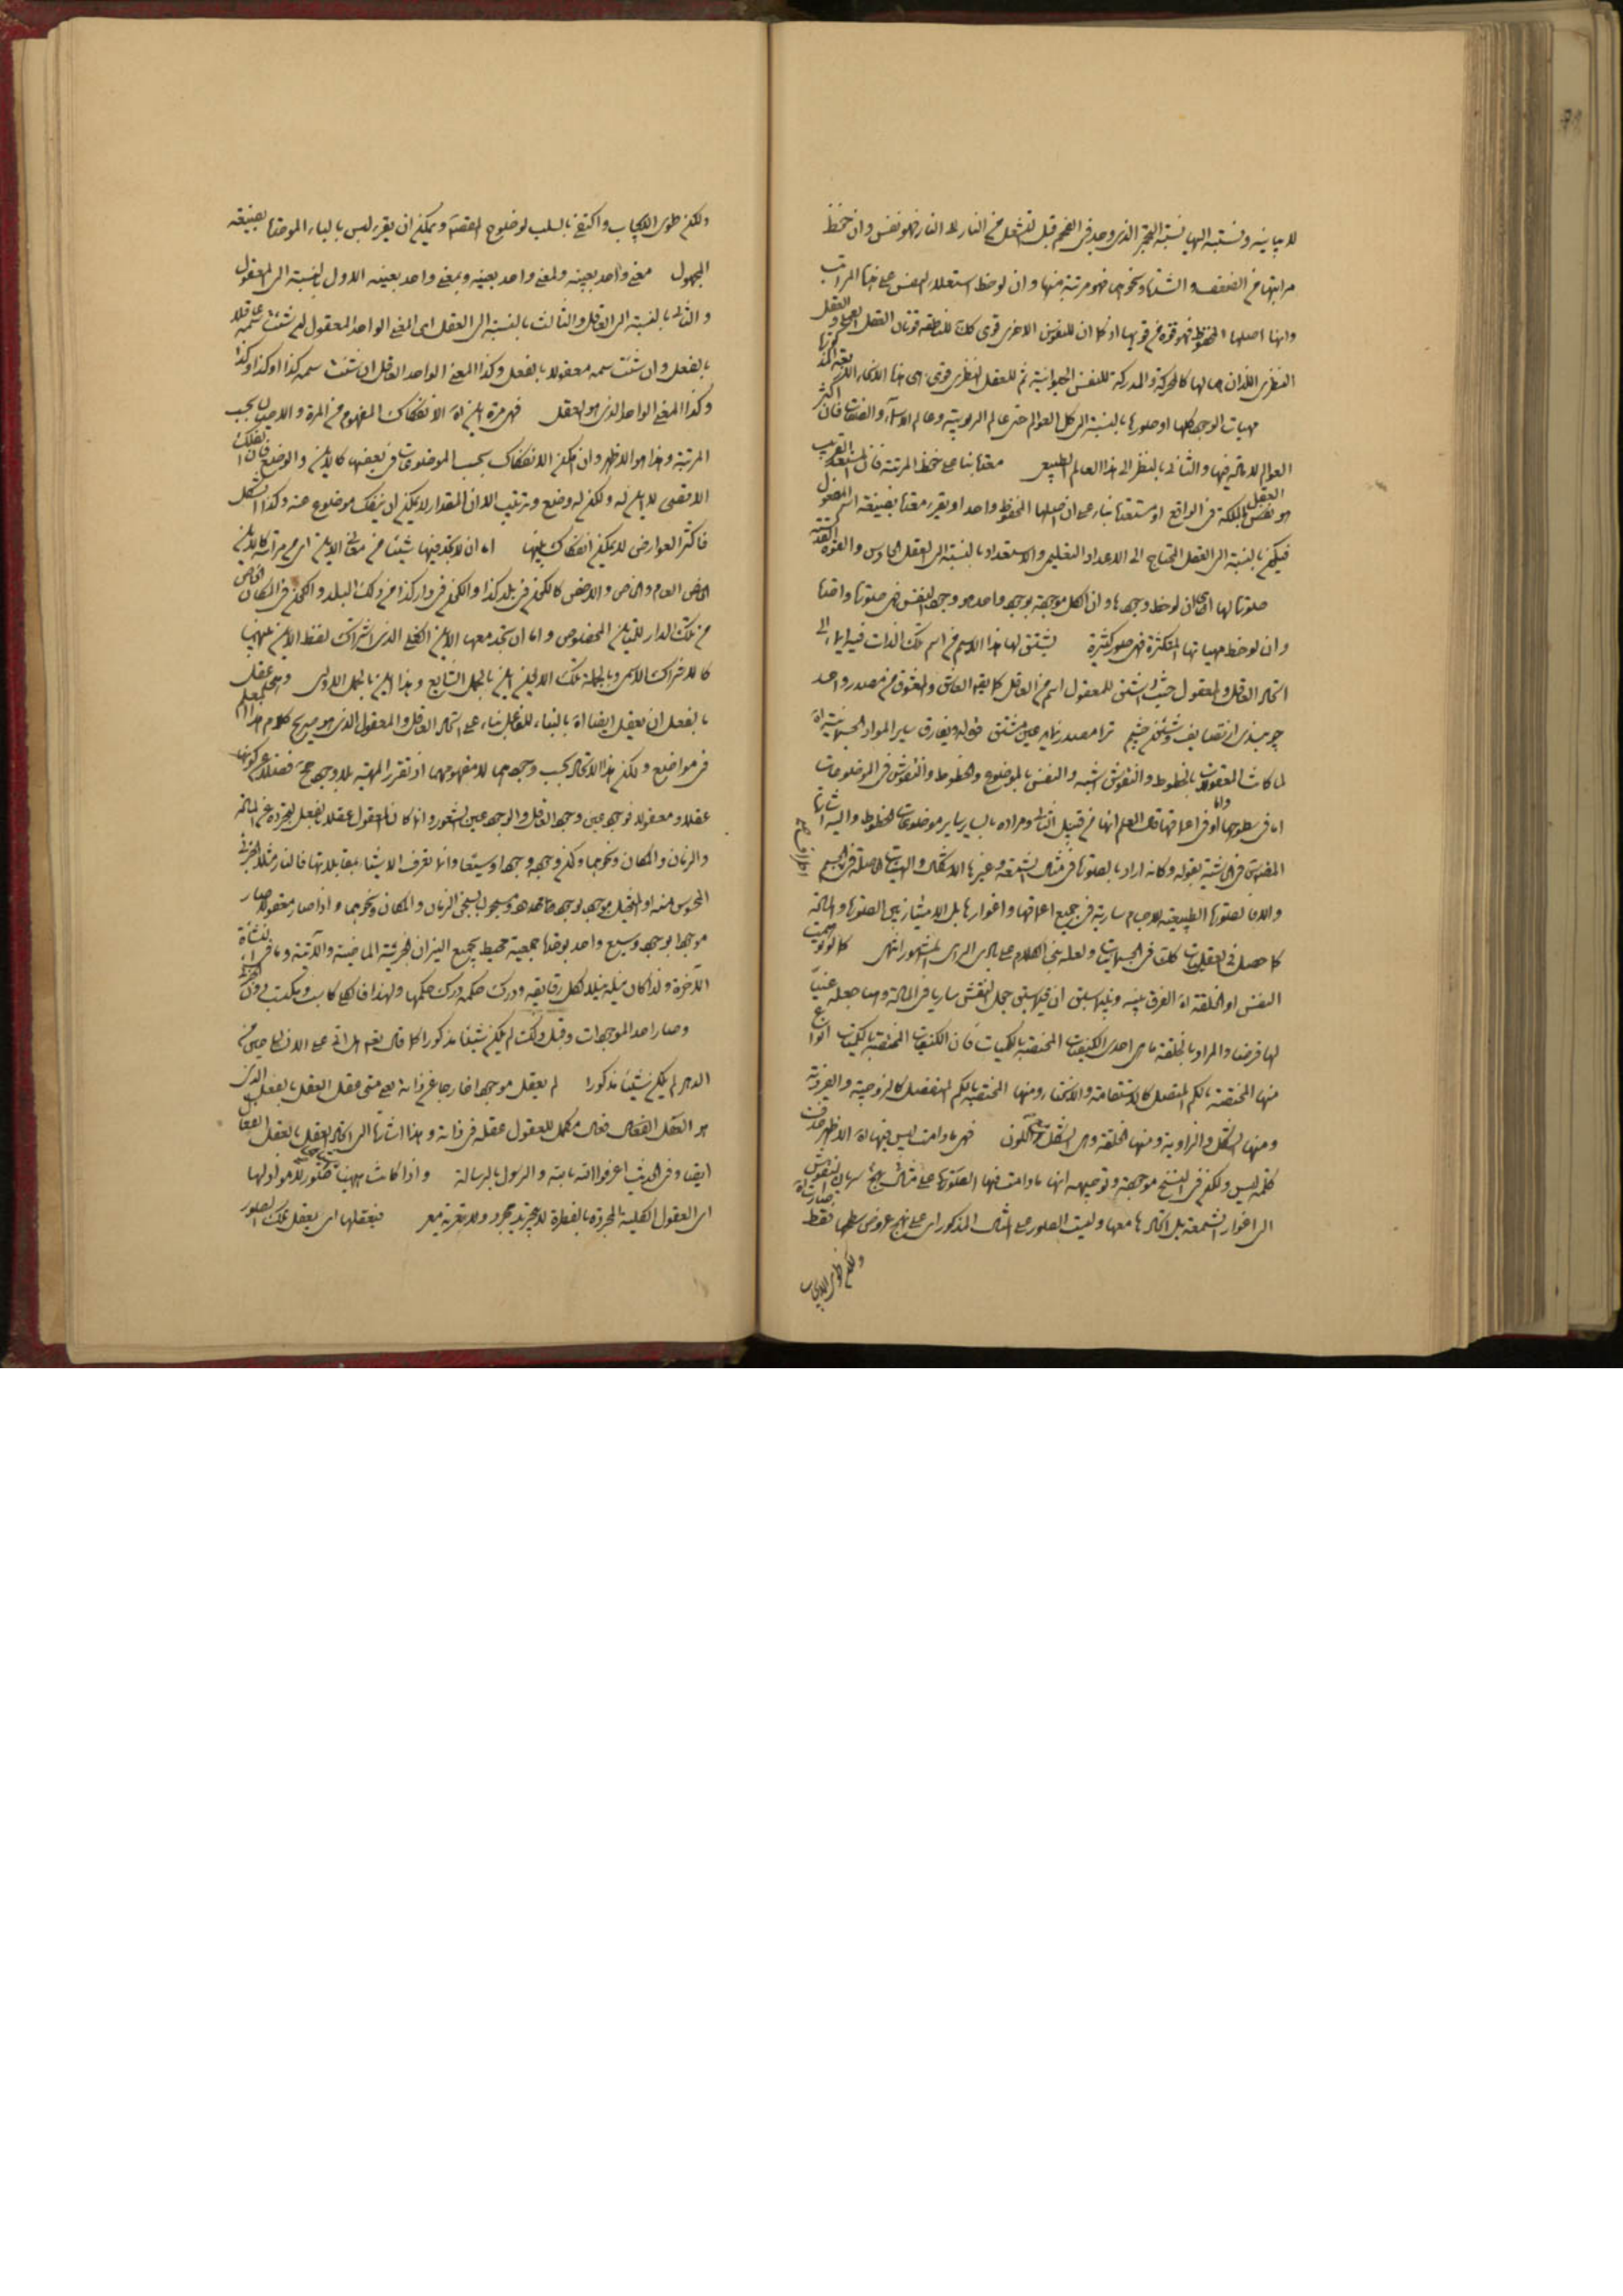 للا يباينه ونسبته اليها نسبة الجمر الذي وجد في الفحم قبل تشعل من النار بلا النار فهو نفس وان حفظ
مراتبها من الضعف والشدة ونحوهما فهو مرتبة منها وان لوحظ استعلاء النفس على هذا المراتب
وانها اصلها المحفوظ فهو قوة من قويها اذ كما ان للنفوس الاخرى قوى كك للناطقة قوتان العقل العملي والعقل
النظري اللذان هما لها كالمحركة والمدركة للنفس الحيوانية ثم للعقل النظري قوى هي هذا
مهيات الوجود كلها او صورها بالنسبة الى كل العوالم حتى عالم الربوبية وعالم الاسماء والصفات فان اكثر
العوالم لا مادة فيها والثاني بالنظر الى هذا العالم الطبيعي معتدا بناء على حفظ المرتبة فان المستعد القريب
هو نفس الملكة في الواقع او مستعدا بناء على ان اصلها المحفوظ واحد او يقرء معتدا بصيغة اسم المفعول
فيكون بالنسبة الى العقل المحتاج الى الاعداد التعليمي والاستعداد بالنسبة الى العقل الحادس والقوة القدسية
صورتها لها اي ان لوحظ وجودها وان الكل موجودة بوجود واحد هو وجود النفس فهي صورتها وذاتها
وان لوحظ مهياتها المتكثرة فهي صور كثيرة يشتق لها هذا الاسم من اسم تلك الذات فيه ايماء الى
اتحاد العاقل والمعقول حيث اشتق للمعقول اسم من العاقل كما يقه العاشق والمعشوق من مصدر واحد
لما كانت المعقولات بالخطوط والنقوش اشبه والنفس بالموضوع والخطوط والنقوش في الموضوعات
اما في سطوحها واما في اعماقها قال المعلم انها من قبيل الثاني ومراده بالسائر ساير موضوعات الخطوط واليه اشار
المقدس في الحاشية بقوله وكانه اراد بالصورة في مثال الشمعة وغيرها الاشكال والهيئات الحاصلة في الجسم
والا فالصورة الطبيعية للاجسام سارية في جميع اعماقها واغوارها بل لا امتياز بين الصورة والمادة
كما حصل في العقليات كك في الجسمانيات ولعله بنى الكلام على بادي الراي المشهور انتهى كما لو توهمت
النفس او الخلقة اه الفرق بينه وبين ما سبق ان فيما سبق جعل النقش ساريا في المادة وهنا جعله عينا
لها فرضا والمراد بالخلقة ما هي احدى الكيفيات المختصة بالكميات فان الكيفيات المختصة بالكميات انواع
منها المختصة بالكم المتصل كالاستقامة والانحناء ومنها المختصة بالكم المنفصل كالزوجية والفردية
ومنها الشكل والزاوية ومنها الخلقة وهي الشكل مع اللون فهي ما دامت ليس فيها اه الاظهر حذف
كلمة ليس ولكن في النسخ موجودة وتوجيهه انها ما دامت فيها الصورة على مثال نهج سريان النقوش
الى اغوار الشمعة بل اتحادها معها وليست الصور على المثال المذكور اي على نهج عروض سطحها فقط
ولكن طوى الايجاب
ولكن طوى الايجاب واكتفى بالسلب لوضوح القصة ويمكن ان يقرء ليس بالباء الموحدة بصيغة
المجهول معنى واحد بعينه ولمعنى واحد بعينه وبمعنى واحد بعينه الاول بالنسبة الى المعقول
والثاني بالنسبة الى العاقل والثالث بالنسبة الى العقل اي المعنى الواحد المعقول ان شئت سمه عاقلا
بالفعل وان شئت سمه معقولا بالفعل وكذا المعنى الواحد العاقل ان شئت سمه كذا او كذا وكذا
وكذا المعنى الواحد الذي هو العقل فهي مرة اين اه الانفكاك المفهوم من المرة والاحيان بحسب
المرتبة وهذا هو الاظهر وان امكن الانفكاك بحسب الموضوعات في بعضها كالاين والوضع فان الفلك
الاقصى لا اين له ولكن له وضع وترتيب الا ان المقدار لا يمكن ان ينفك موضوع عنه وكذا الشكل
فاكثر العوارض لا يمكن انفكاك بينها اما ان لا تجد فيها شيئا من معاني الاين اي من مراتبه كالاين
العام والخاص والاخص كالكون في بلد كذا والكون في دار كذا من ذلك البلد والكون في المكان الخاص
من تلك الدار للمتاين المخصوص واما ان تجد معها الاين العقلي الذي اشتراك لفظ الاين بينهما
كالاشتراك الاسمي وبالجملة تلك الاين اين بالحمل الشايع وهذا اين بالحمل الاولي
بالفعل ان تعقل ايضا اه بالبناء للفاعل بناء على اتحاد العاقل والمعقول الذي هو صريح كلام هذا المعلم
في مواضع ولكن هذا الاتحاد بحسب وجودهما لا مفهومهما اذ تقرر المهية بلا وجود مح فضلا عن كونها
عقلا ومعقولا فوجوده عين وجود العاقل والوجود عين الشعور وانما كان المعقول عقلا بالفعل لتجرده عن المادة
والزمان والمكان ونحوهما وكون وجوده وجودا وسيعا وانما تعرف الاشياء بمقابلاتها فالنار مثلا الجزئي
المحسوس منه او المتخيل موجود بوجود ومسجون بسجن الزمان والمكان ونحوهما واذا صار معقولا صار
موجودا بوجود وسيع واحد بوحدة جمعية محيط بجميع النيران الجزئية الماضية والآتية وما في النشأة
الآخرة ولذا كان نيله نيلا لكل رقايقه ودرك حكمه درك حكمها ولهذا فالكلي كاسب ومكتسب دون الجزئي
وصار احد الموجودات وقبل ذلك لم يكن شيئا مذكورا كما قال تعم هل اتى على الانسان حين من
الدهر لم يكن شيئا مذكورا لم يعقل موجودا خارجا عن ذاته يعني متى عقل العقل بالفعل الذي
هو العقل الفعال فعال مكمل للعقول عقله في ذاته وهذا اشارة الى اتحاد العقل بالعقل الفعال
ايضا وفي الحديث اعرفوا الله بالله والرسول بالرسالة واذا كانت ههنا صور لا مواد لها
اي العقول الكلية المجردة بالفطرة لا بتجريد مجرد ولا بتعرية معر فتعقلها اي تعقل تلك الصور